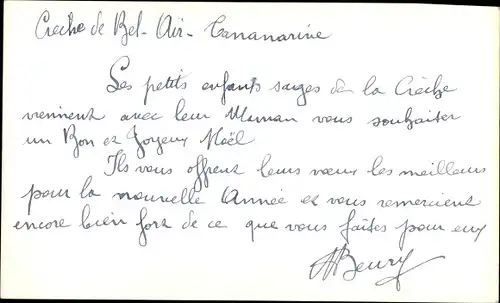 Crèche de Bel-Air - Tananarive
Les petits enfants sages de la Crèche
viennent avec leur Maman vous souhaiter
un Bon et Joyeux Noël
Ils vous offrent leurs vœux les meilleurs
pour la nouvelle Année et vous remercient
encore bien fort de ce que vous faites pour eux